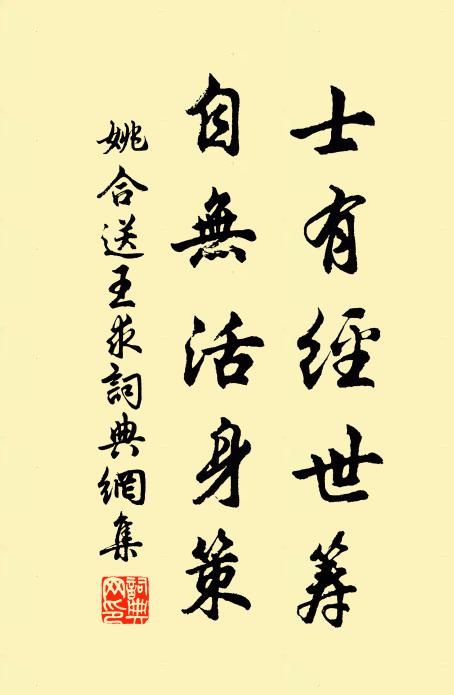 士有經世籌
自無活身策
姚合送王求詞典網集
詞典網印